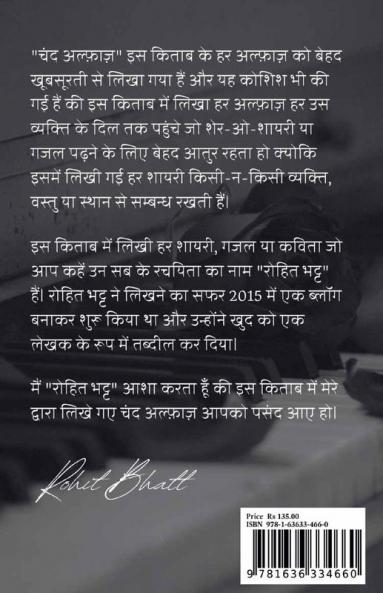 "चंद अल्फ़ाज़" इस किताब के हर अल्फ़ाज़ को बेहद
खूबसूरती से लिखा गया हैं और यह कोशिश भी की
गई हैं की इस किताब में लिखा हर अल्फ़ाज़ हर उस
व्यक्ति के दिल तक पहुंचे जो शेर-ओ-शायरी या
गजल पढ़ने के लिए बेहद आतुर रहता हो क्योकि
इसमें लिखी गई हर शायरी किसी-न-किसी व्यक्ति,
वस्तु या स्थान से सम्बन्ध रखती हैं।
इस किताब में लिखी हर शायरी, गजल या कविता जो
आप कहें उन सब के रचयिता का नाम "रोहित भट्ट"
हैं। रोहित भट्ट ने लिखने का सफर 2015 में एक ब्लॉग
बनाकर शुरू किया था और उन्होंने खुद को एक
लेखक के रूप में तब्दील कर दिया।
मैं "रोहित भट्ट" आशा करता हूँ की इस किताब में मेरे
द्वारा लिखे गए चंद अल्फ़ाज़ आपको पसंद आए हो।
Rohit Bhatt
Price Rs 135.00
ISBN 978-1-63633-466-0
9 781636 334660